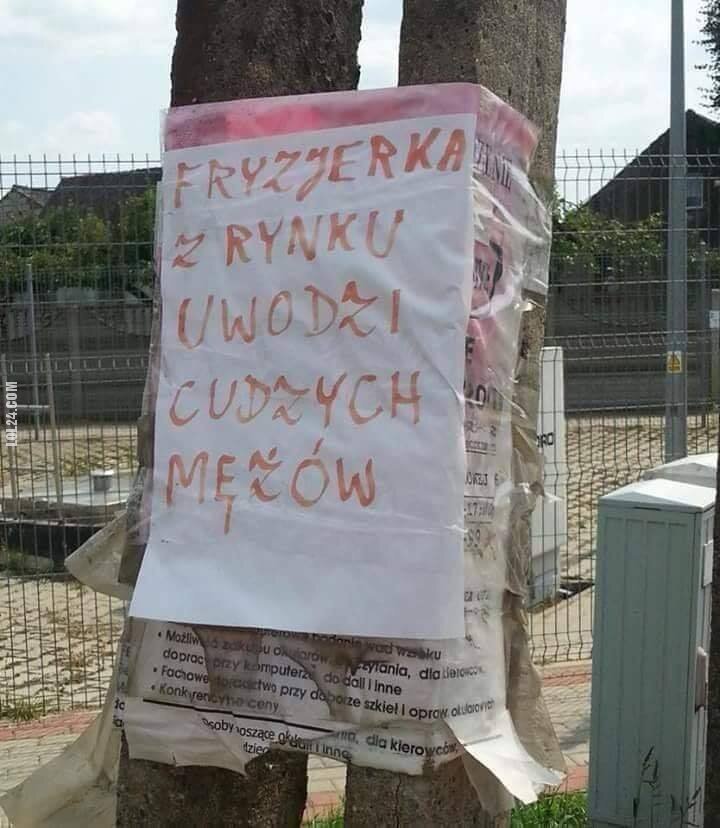 FRYZJERKA
Z RYNKU
UWODZI
CUDZYCH
MĘŻÓW
LOL24.COM
badanie wad wzroku
• Możliwość zakupu okularów czytania, dla kierowców,
do pracy przy komputerze, do dali i inne
• Fachowe doradztwo przy doborze szkieł i opraw okularowych
• Konkurencyjne ceny
osoby noszące dla kierowców,
do dali i inne